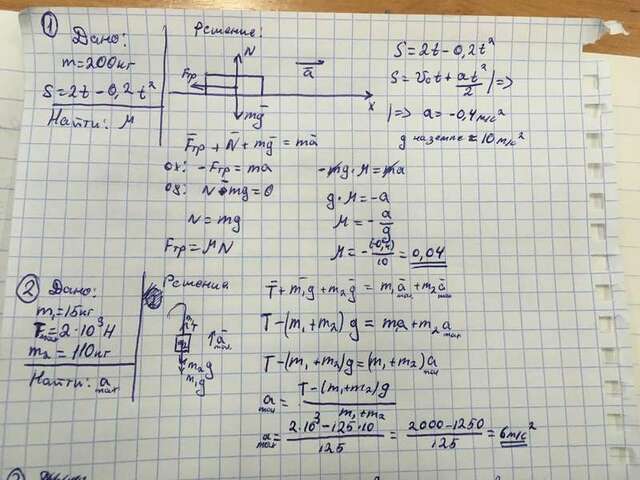 ① Дано:
m = 200 кг
S = 2t − 0,2t²
Найти: μ
Решение:
N
Fтр
mg
a
x
S = 2t − 0,2t²
S = v₀t + at²/2 | =>
| => a = −0,4 м/с²
g на земле ≈ 10 м/с²
Fтр + N + mg = ma
ox: −Fтр = ma
oy: N − mg = 0
N = mg
Fтр = μN
−mg·μ = ma
g·μ = −a
μ = −a/g
μ = −(−0,4)/10 = 0,04
② Дано:
m₁ = 15 кг
Tmax = 2·10³ Н
m₂ = 110 кг
Найти: amax
Решения
T
a
m₂g
m₁g
T + m₁g + m₂g = m₁a + m₂a
T − (m₁ + m₂)g = m₁a + m₂a
T − (m₁ + m₂)g = (m₁ + m₂)a
amax = T − (m₁ + m₂)g / m₁ + m₂
amax = 2·10³ − 125·10 / 125 = 2000 − 1250 / 125 = 6 м/с²